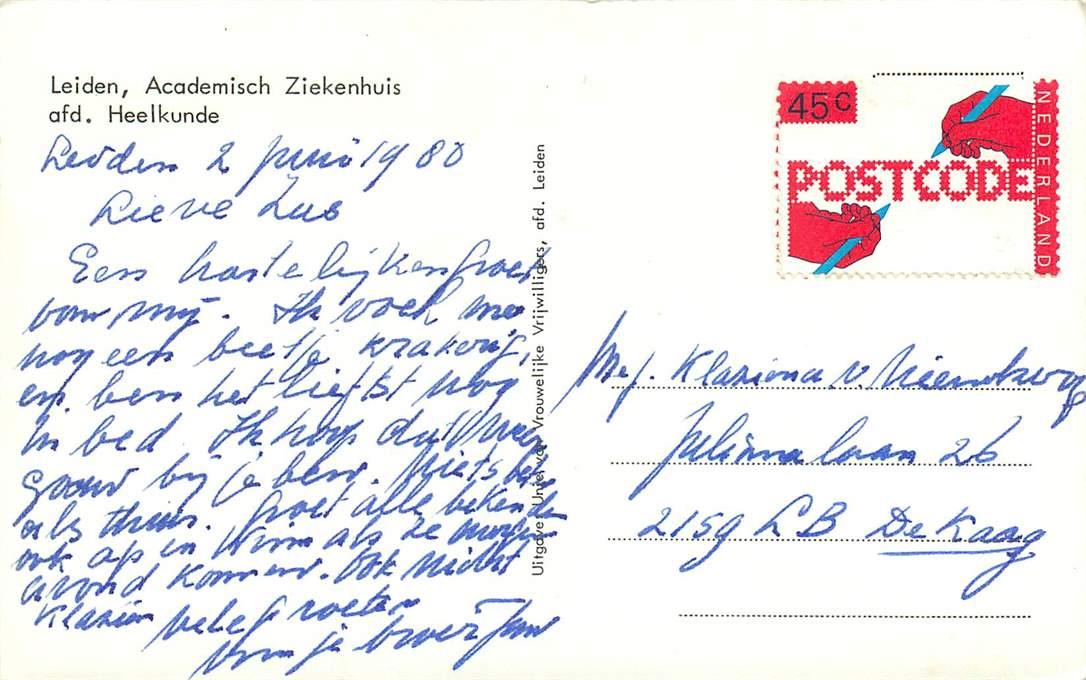 Leiden, Academisch Ziekenhuis
afd. Heelkunde
Leiden 2 Juni 1980
Lieve Zus
Een hartelijken groet
van mij. Ik voel me
nog een beetje krakerig,
en ben het liefst nog
in bed. Ik hoop dat weer
gauw bij je ben. Niets beter
als thuis. Groet alle bekenden
ook op en Wim als ze morgen
avond komen. Ook nicht
Klazien vele groeten
van je broer Jan
Uitgave: Unie van Vrouwelijke Vrijwilligers, afd. Leiden
45c
POSTCODE
NEDERLAND
Mej. Klaziena v. Nieuwkoop
Julianalaan 26
2159 LB De Kaag